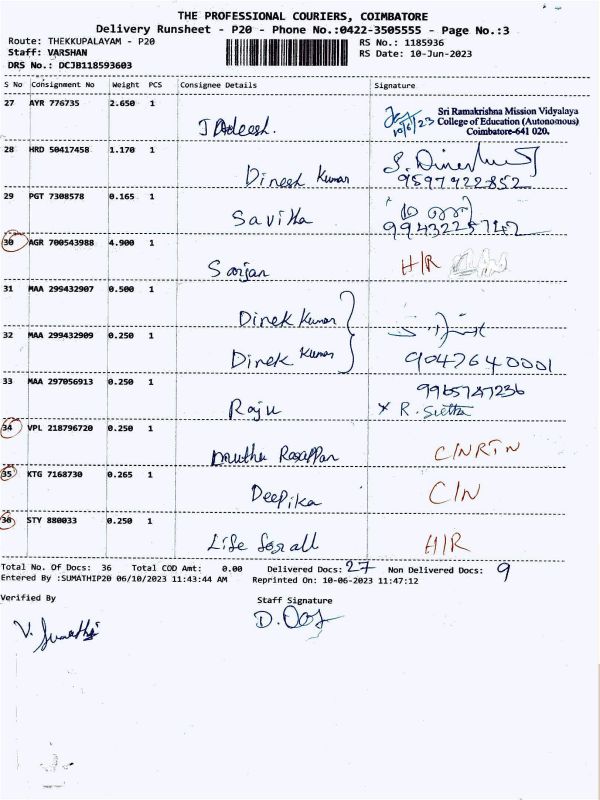 THE PROFESSIONAL COURIERS, COIMBATORE
Delivery Runsheet - P20 - Phone No.:0422-3505555 - Page No.:3
Route: THEKKUPALAYAM - P20 RS No.: 1185936
Staff: VARSHAN RS Date: 10-Jun-2023
DRS No.: DCJB118593603
S No Consignment No Weight PCS Consignee Details Signature
27 AYR 776735 2.650 1
Sri Ramakrishna Mission Vidyalaya
10/6/23 College of Education (Autonomous)
Coimbatore-641 020.
28 HRD 50417458 1.170 1
Dinesh Kumar 95979 22852
29 PGT 7308578 0.165 1
Savitha
30 AGR 700543988 4.900 1
H/R
31 MAA 299432907 0.500 1
Dinek Kumar
32 MAA 299432909 0.250 1
Dinek Kumar 9047640001
33 MAA 297056913 0.250 1
9965747236
Raju x R.
34 VPL 218796720 0.250 1
Muthu C/N RTN
35 KTG 7168730 0.265 1
Deepika C/N
36 STY 880033 0.250 1
Life for all H/R
Total No. Of Docs: 36 Total COD Amt: 0.00 Delivered Docs: 27 Non Delivered Docs: 9
Entered By :SUMATHIP20 06/10/2023 11:43:44 AM Reprinted On: 10-06-2023 11:47:12
Verified By Staff Signature
V. Sumathi